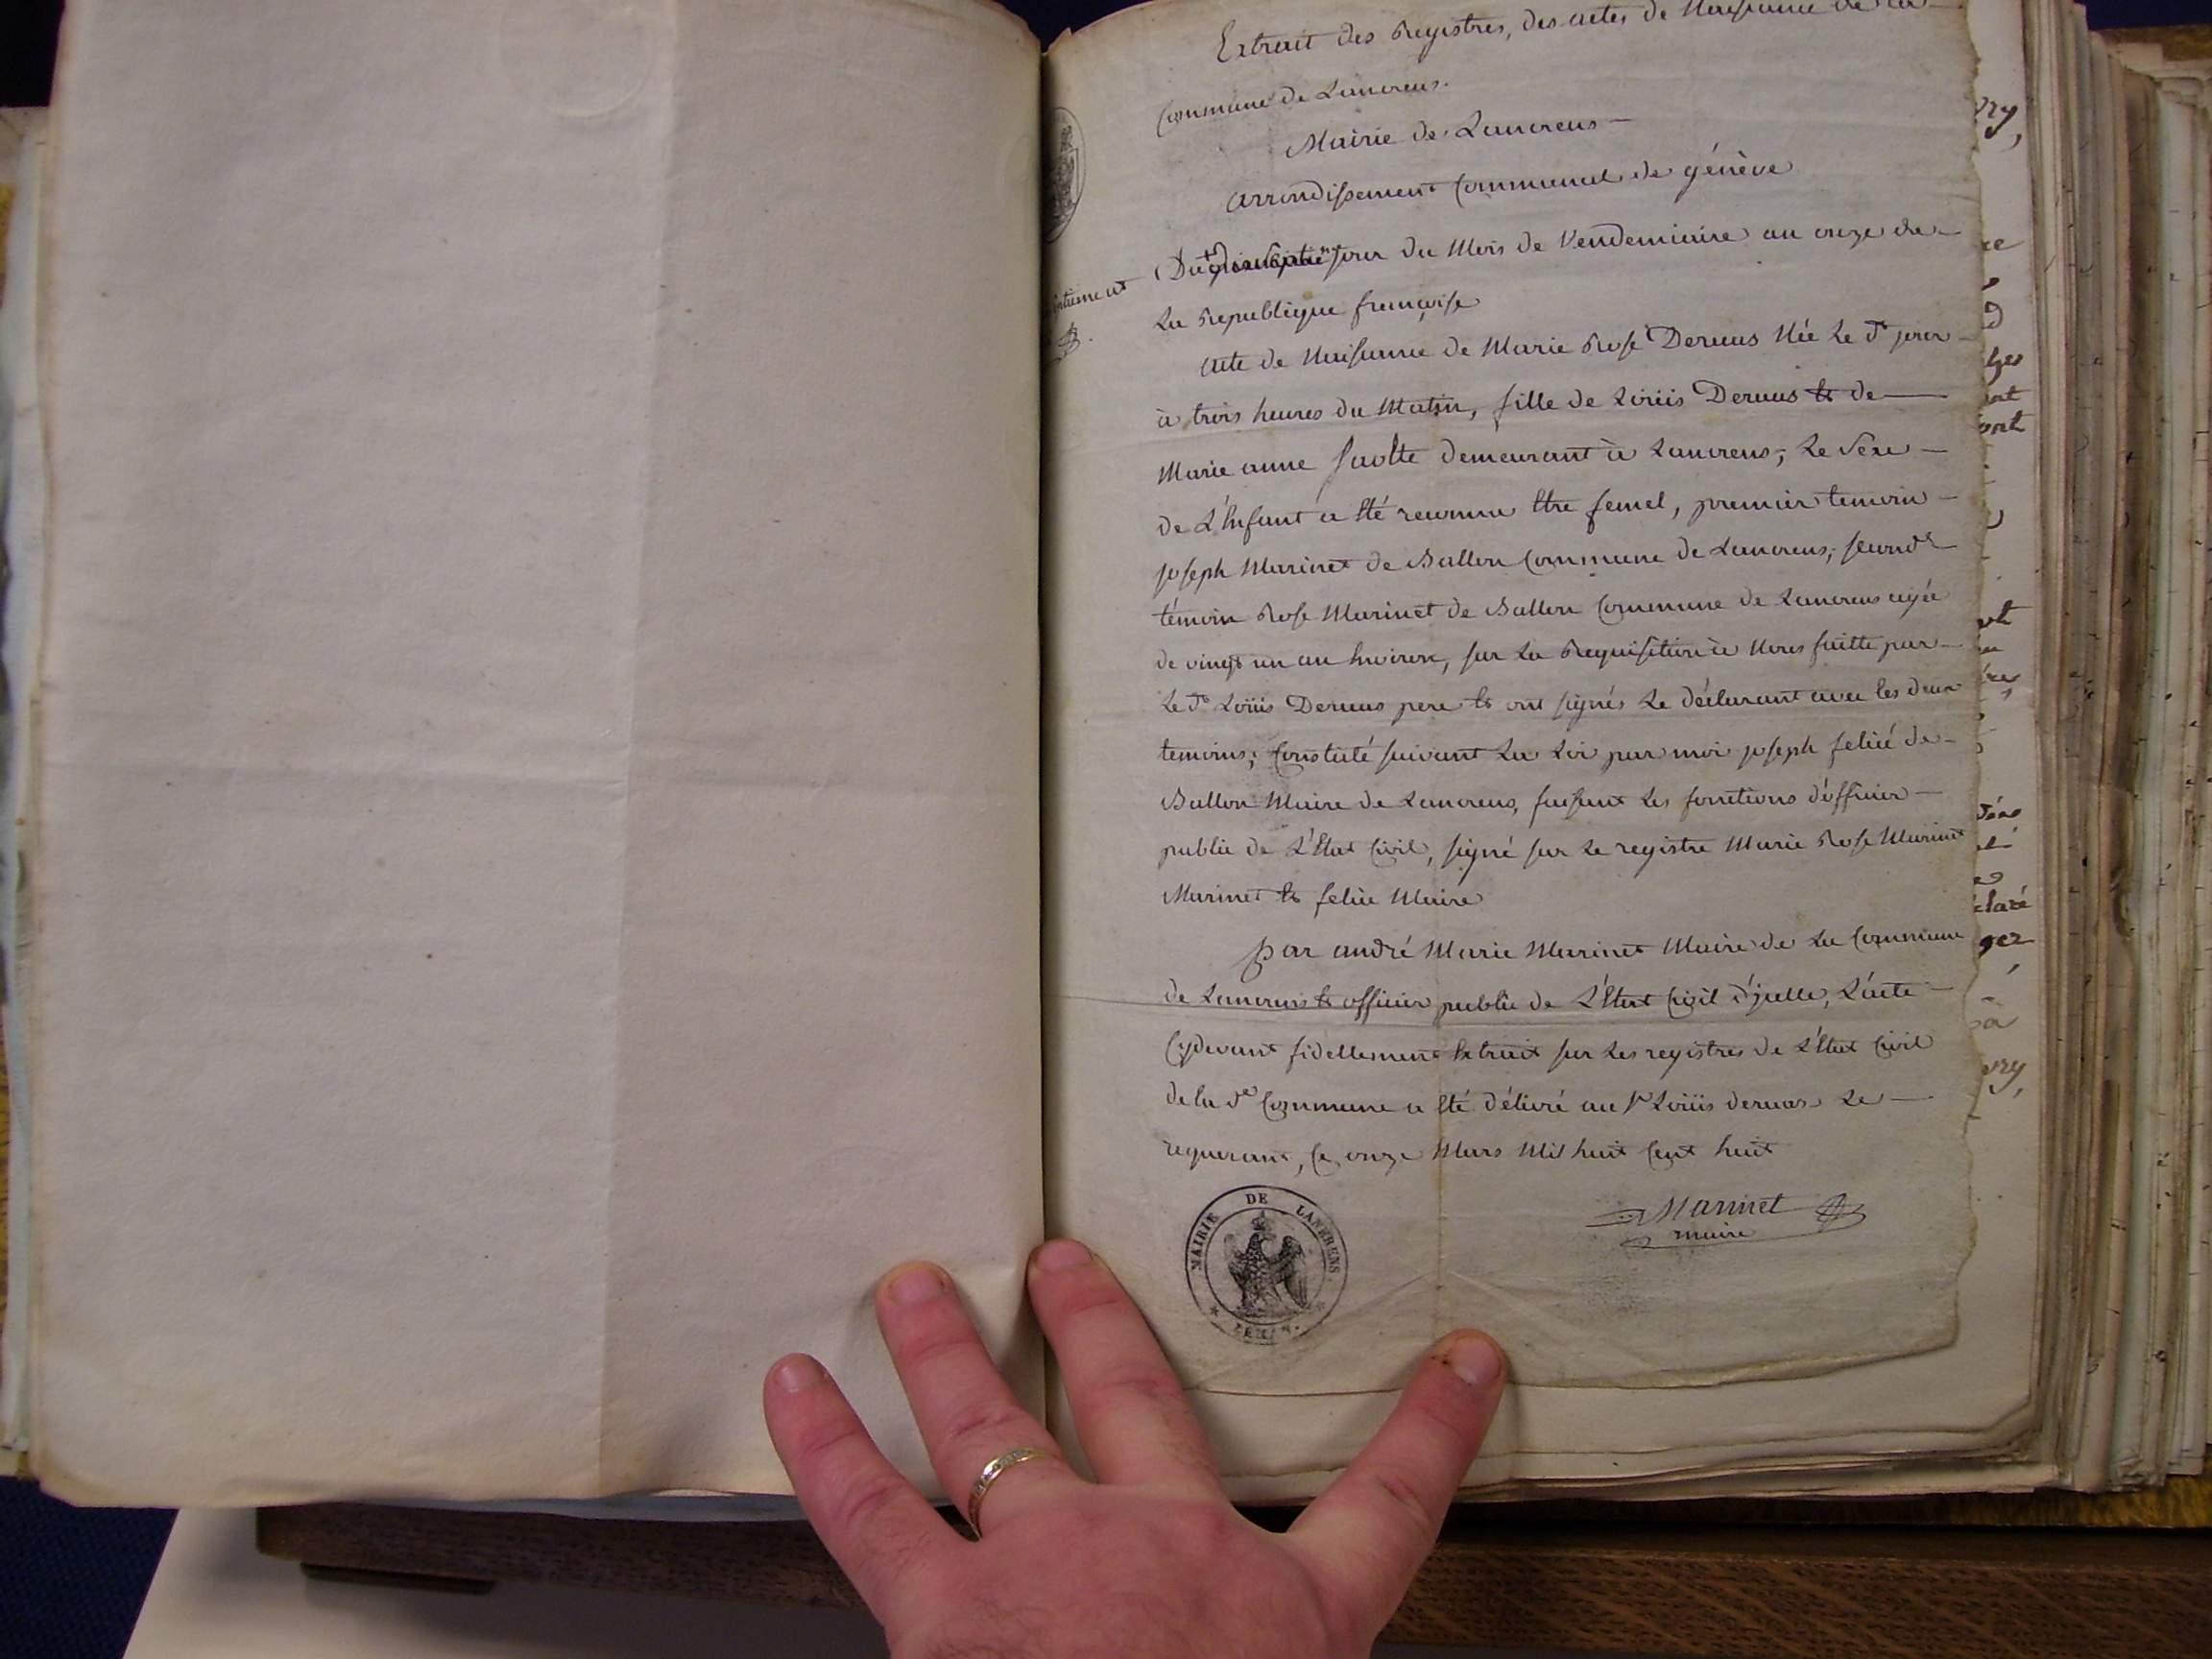 Extrait des Registres, des actes de Naissance de la
Commune de Lancrens.
Mairie de Lancrens
Arrondissement Communal de génève
Du jour du Mois de Vendemiaire an onze de
La Republique françoise
Acte de Naissance de Marie Rose Dervas Née Le dt jour
à trois heures du Matin, fille de Loüis Dervas et de
Marie anne demeurant à Lancrens; Le Sexe
de L'Enfant a Eté reconnu Etre femel, premier temoin
joseph Marinet de Ballon Commune de Lancrens; second
témoin Rose Marinet de Ballon Commune de Lancrens agée
de vingt un an Environ, sur La Requisition à Nous faitte par
Le dt Loüis Dervas pere Et ont signés Le déclarant avec les deux
temoins; Constaté suivant La Loi par moi joseph felix de
Ballon Maire de Lancrens, faisant Les fonctions d'officier
public de L'Etat Civil, signé sur Le registre Marie Rose Marinet
Marinet Et felix Maire
par andré Marie Marinet Maire de La Commune
de Lancrens Et officier public de L'Etat Civil d'jcelle, L'acte
Cydevant fidellement Extrait sur Les registres de L'Etat Civil
de la de Commune a Eté délivré au Sr Loüis dervas Le
requerant, Ce onze Mars Mil huit Cent huit
Marinet
maire
MAIRIE DE LANCRENS
LEMAN